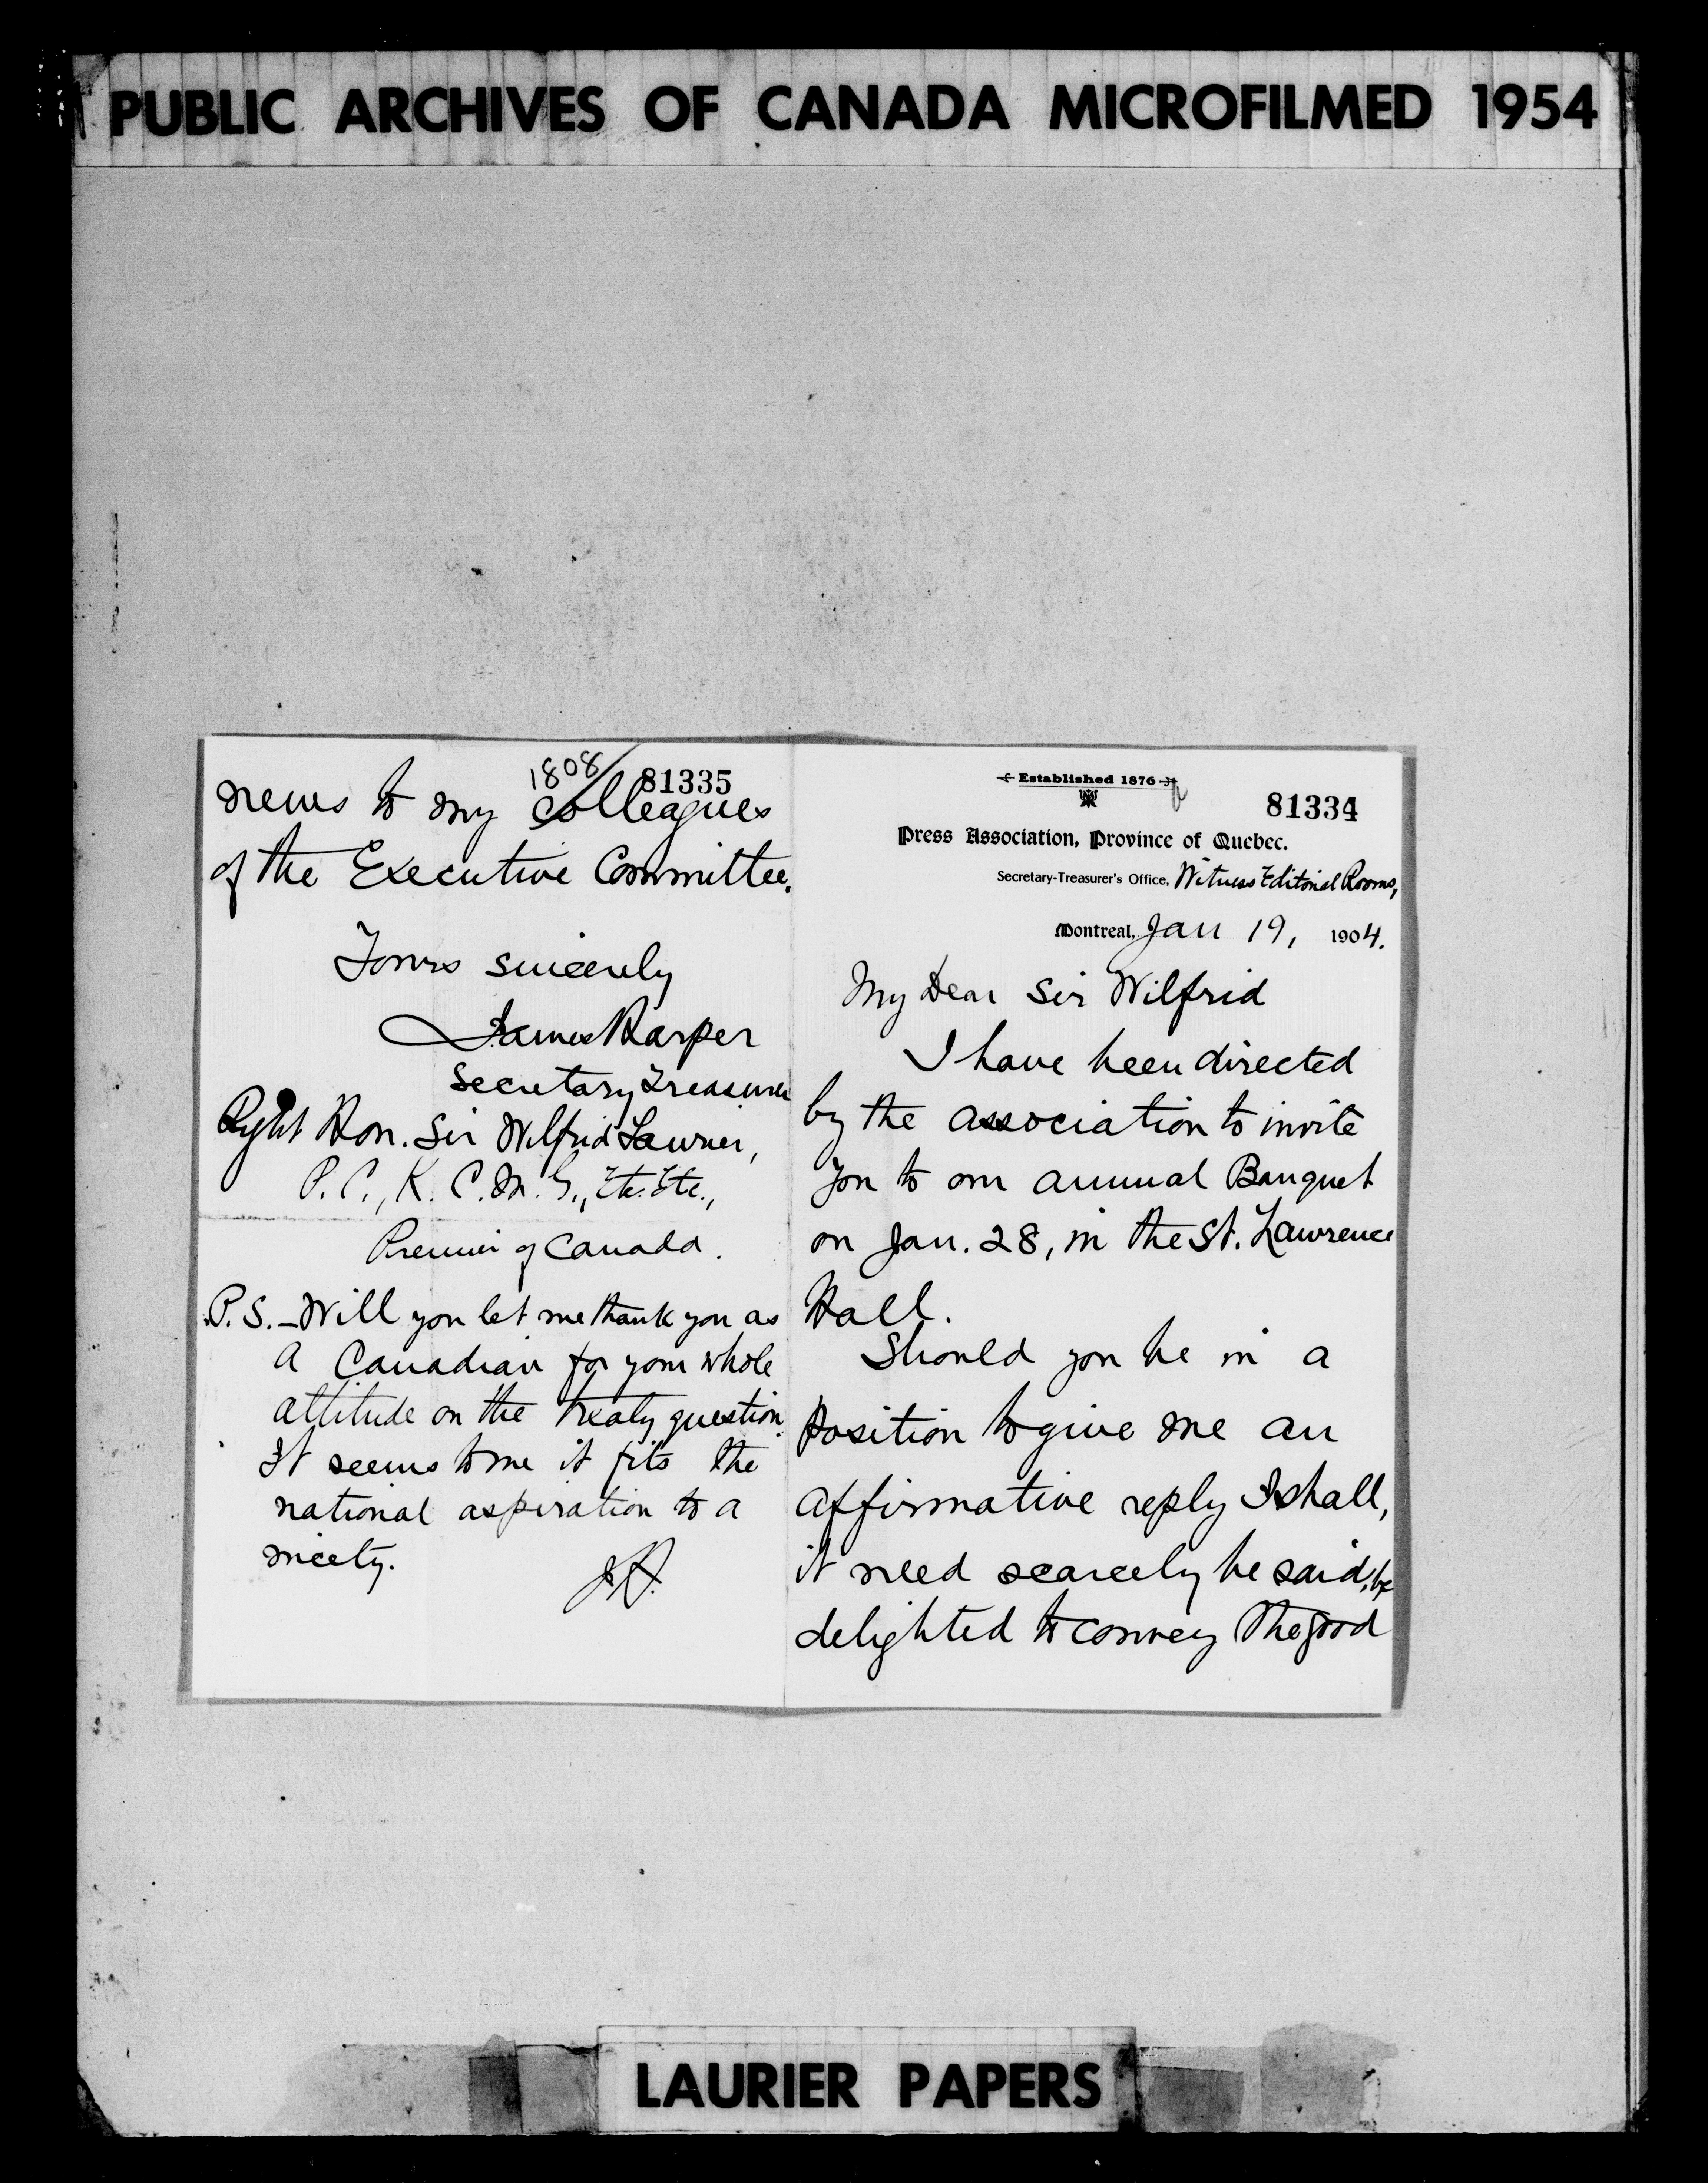 PUBLIC ARCHIVES OF CANADA MICROFILMED 1954
Established 1876
81334
Press Association, Province of Quebec.
Secretary-Treasurer's Office, Witness Editorial Rooms,
Montreal, Jan 19, 1904.
My Dear Sir Wilfrid
I have been directed
by the association to invite
you to our annual Banquet
on Jan. 28, in the St. Lawrence
Hall.
Should you be in a
position to give me an
affirmative reply I shall,
it need scarcely be said, be
delighted to convey the good
1808
81335
news to my colleagues
of the Executive Committee.
Yours sincerely
James Harper
Secretary Treasurer
Right Hon. Sir Wilfrid Laurier,
P.C., K.C.M.G., Etc. Etc.,
Premier of Canada.
P.S.—Will you let me thank you as
a Canadian for your whole
attitude on the treaty question.
It seems to me it fits the
national aspiration to a
nicety.
J.H.
LAURIER PAPERS